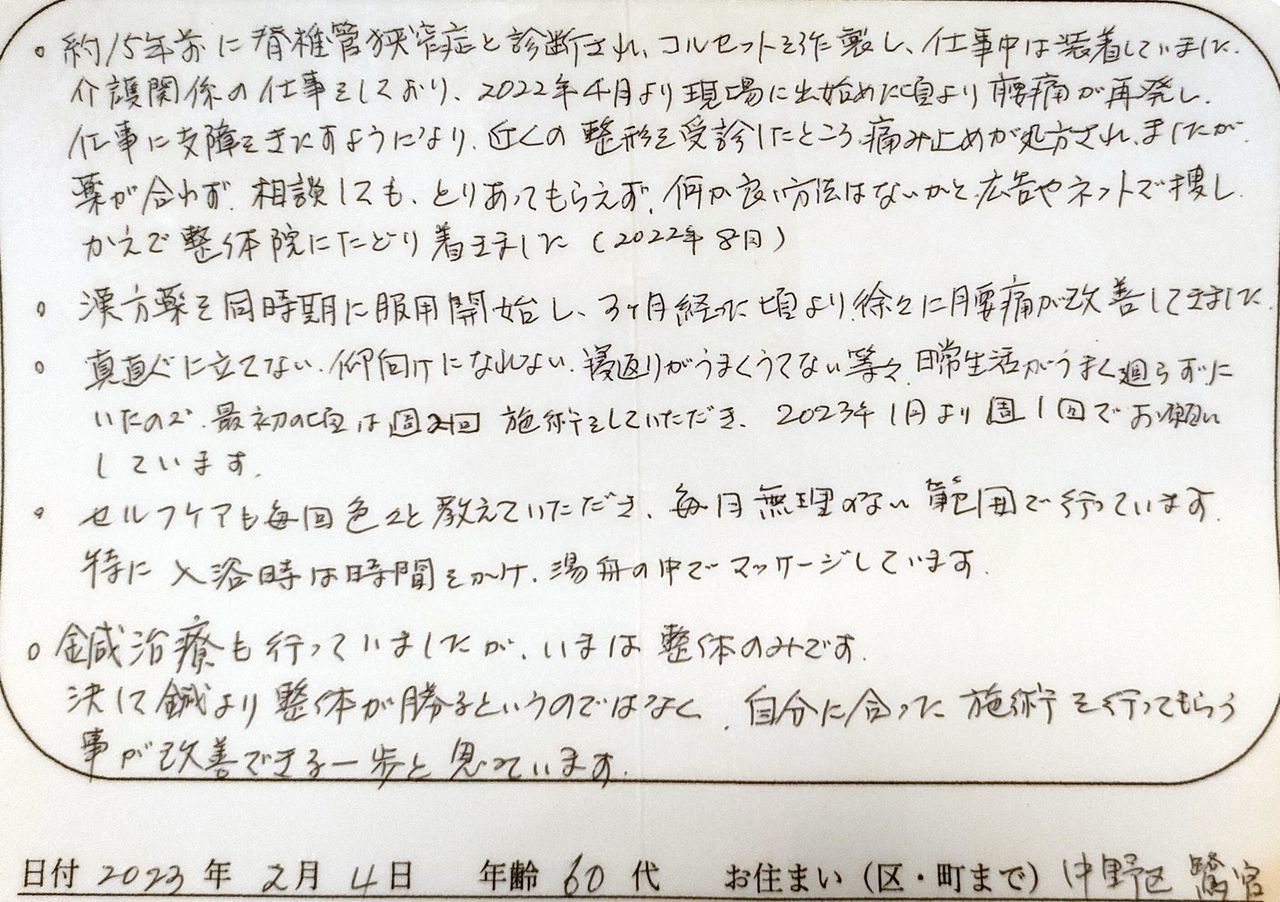 ○ 約15年前に脊椎管狭窄症と診断され、コルセットを作製し、仕事中は装着していました。
介護関係の仕事をしており、2022年4月より現場に出始めた頃より腰痛が再発し、
仕事に支障をきたすようになり、近くの整形を受診したところ痛み止めが処方され、ましたが、
薬が合わず、相談しても、とりあってもらえず、何か良い方法はないかと広告やネットで捜し
かえで整体院にたどり着きました(2022年8月)
○ 漢方薬を同時期に服用開始し、3ヶ月経った頃より徐々に腰痛が改善してきました
○ 真直ぐに立てない、仰向けになれない、寝返りがうまくうてない等々、日常生活がうまく廻らずに
いたので、最初の頃は週2回 施術をしていただき、2023年1月より週1回でお願い
しています。
○ セルフケアも毎回色々と教えていただき、毎日無理のない範囲で行っています。
特に入浴時は時間をかけ、湯舟の中でマッケージしています。
○ 鍼治療も行っていましたが、いまは整体のみです。
決して鍼より整体が勝るというのではなく、自分に合った施術を行ってもらう
事が改善できる一歩と思っています。
日付 2023 年 2月 4日 年齢 60 代 お住まい(区・町まで)中野区 鷺宮